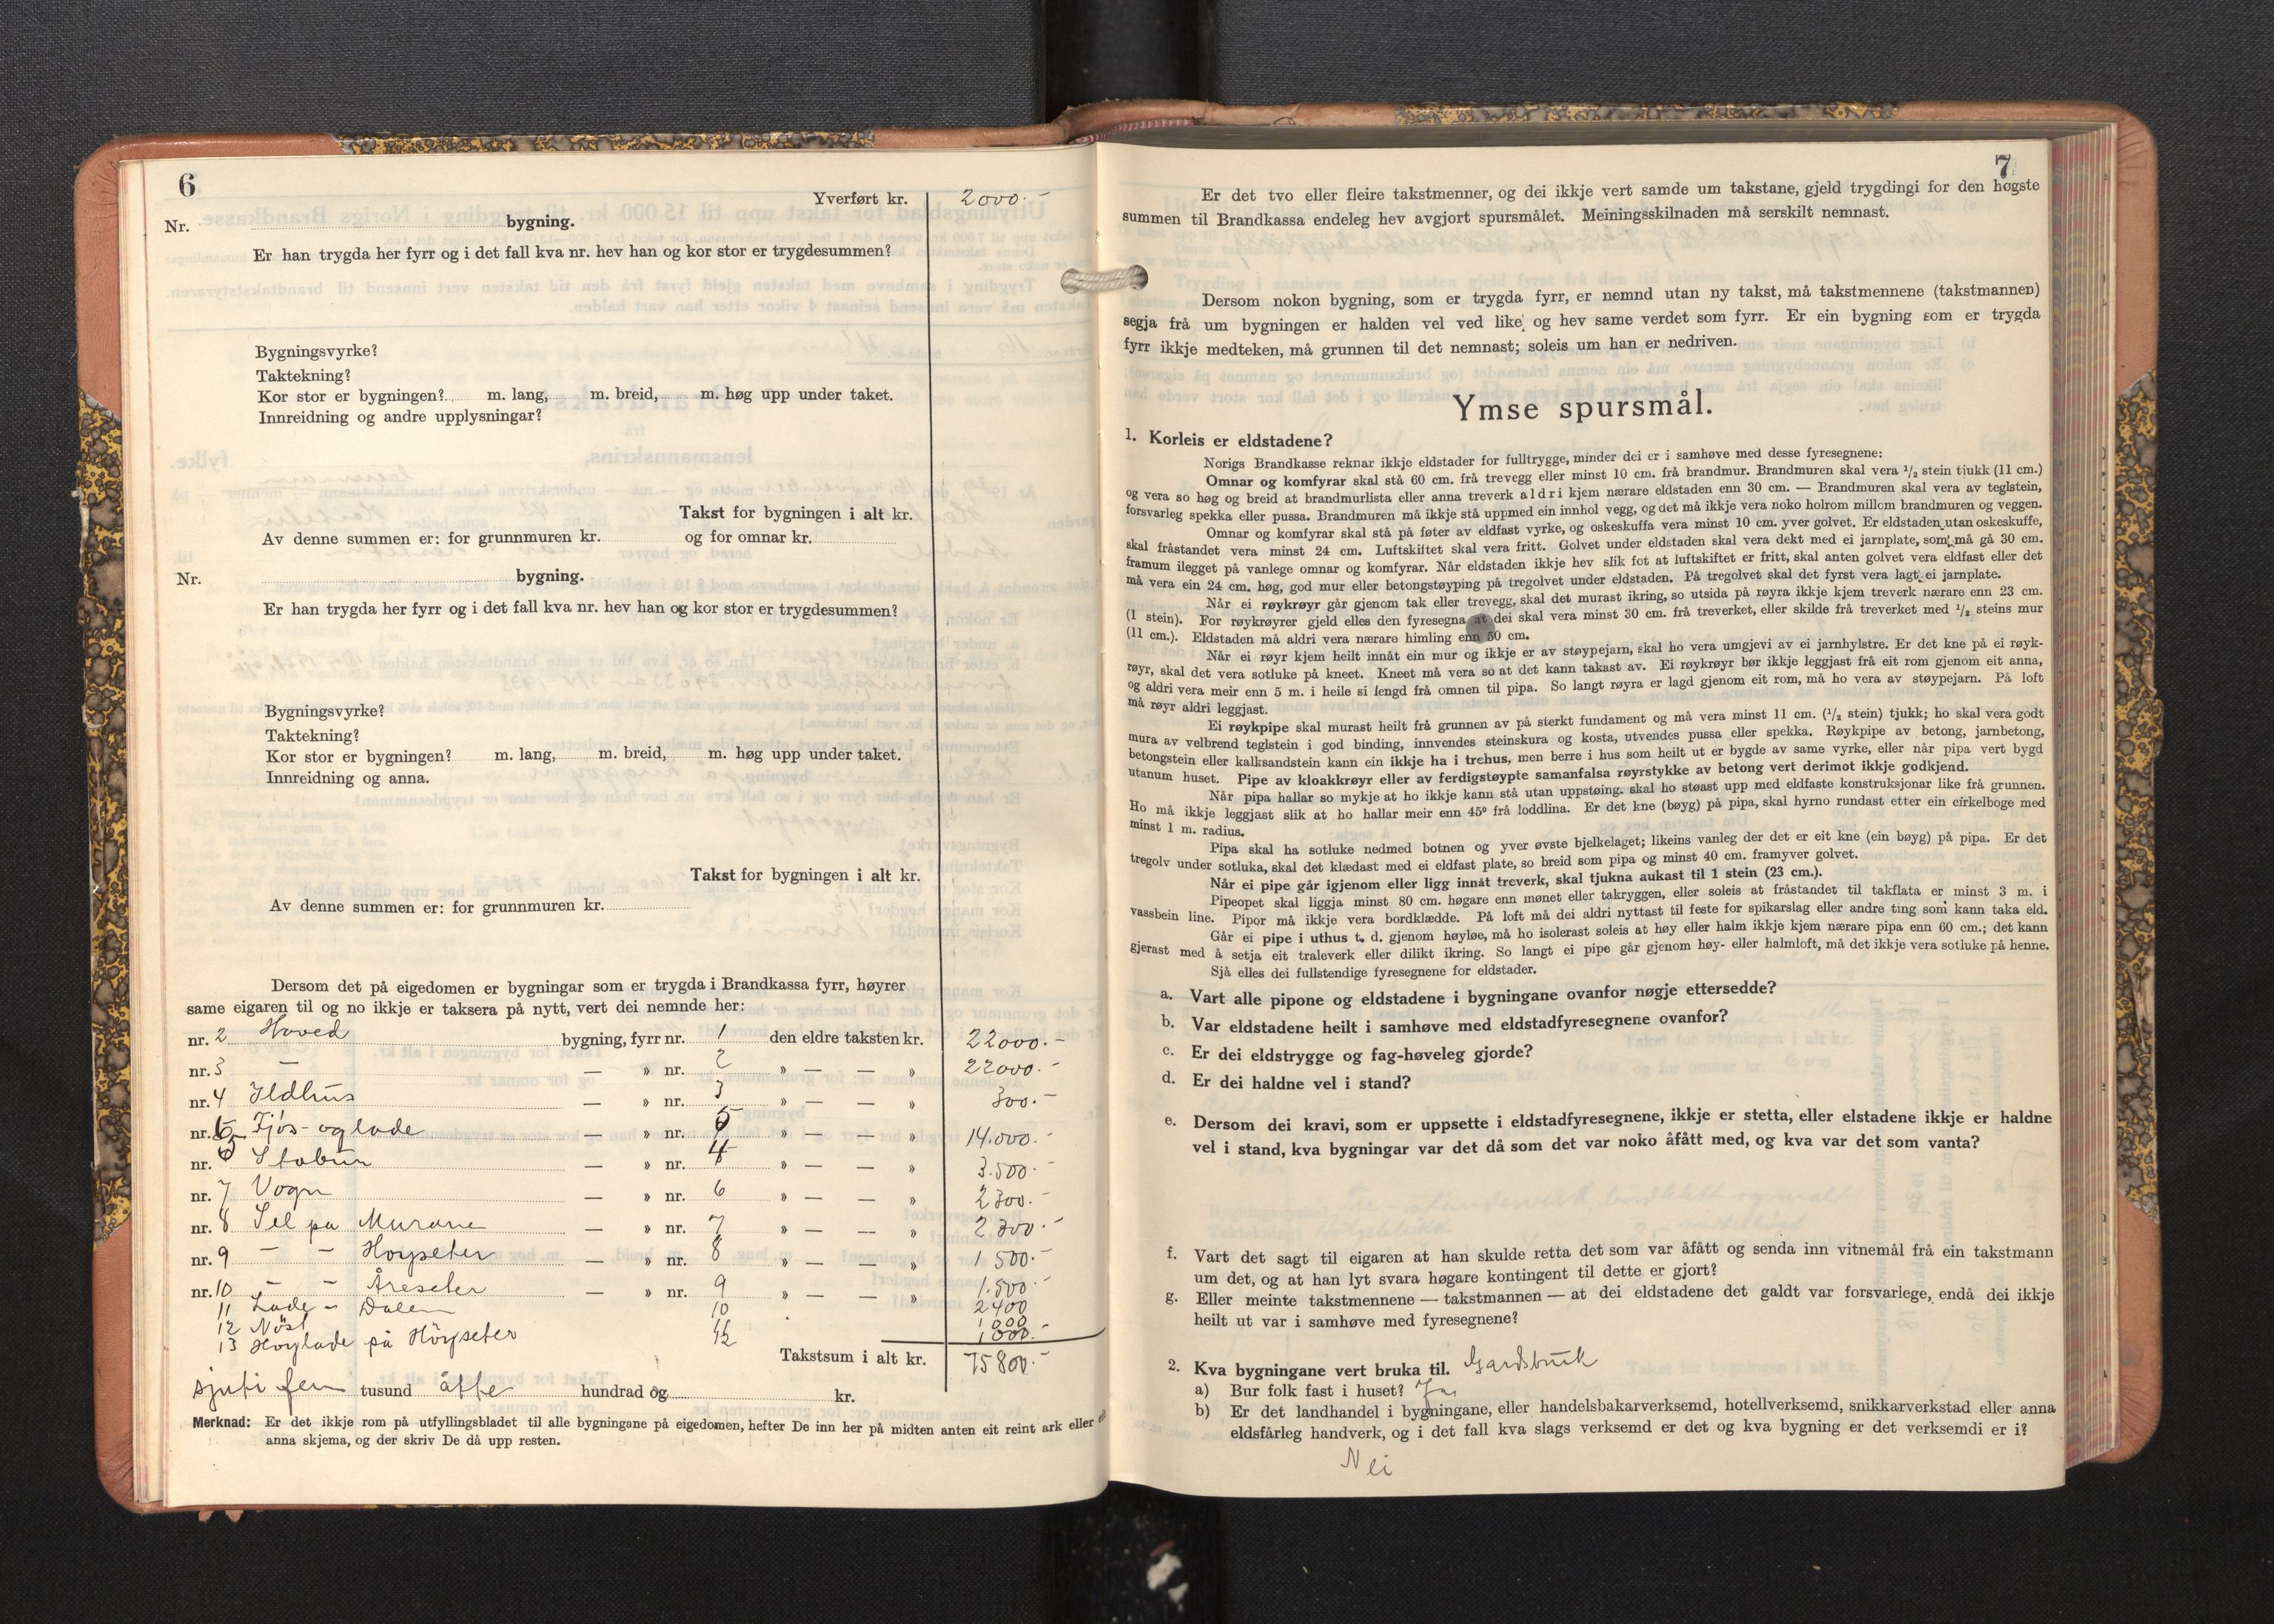 6
Yverført kr. 2000.-
Nr. bygning.
Er han trygda her fyrr og i det fall kva nr. hev han og kor stor er trygdesummen?
Bygningsvyrke?
Taktekning?
Kor stor er bygningen? m. lang, m. breid, m. høg upp under taket.
Innreidning og andre upplysningar?
Takst for bygningen i alt kr.
Av denne summen er: for grunnmuren kr. og for omnar kr.
Nr. bygning.
Er han trygda her fyrr og i det fall kva nr. hev han og kor stor er trygdesummen?
Bygningsvyrke?
Taktekning?
Kor stor er bygningen? m. lang, m. breid, m. høg upp under taket.
Innreidning og anna.
Takst for bygningen i alt kr.
Av denne summen er: for grunnmuren kr.
Dersom det på eigedomen er bygningar som er trygda i Brandkassa fyrr, høyrer
same eigaren til og no ikkje er taksera på nytt, vert dei nemnde her:
nr. 2 Hoved bygning, fyrr nr. 1 den eldre taksten kr. 22000.-
nr. 3 — — » nr. 2 » — — » 22000.-
nr. 4 Ildhus — » nr. 3 » — — » 300.-
nr. 5 Fjös- og lade — » nr. 5 » — — » 14.000.-
nr. 6 Stabur — » nr. 4 » — — » 3.500.-
nr. 7 Vogn — » nr. 6 » — — » 2300.-
nr. 8 Sel pa Murane — » nr. 7 » — — » 2300.-
nr. 9 — — Höypseter — » nr. 8 » — — » 1500.-
nr. 10 — — Åreseter — » nr. 9 » — — » 1.500.-
11 Lade - Dalen 10 2400
12 Nöst 11 1000
13 Höylade på Höypseter 12 1000.-
Takstsum i alt kr. 75800.-
sjuti fem tusund åtte hundrad og kr.
Merknad: Er det ikkje rom på utfyllingsbladet til alle bygningane på eigedomen, hefter De inn her på midten anten eit reint ark eller
anna skjema, og der skriv De då upp resten.
7
Er det tvo eller fleire takstmenner, og dei ikkje vert samde um takstane, gjeld trygdingi for den høgste
summen til Brandkassa endeleg hev avgjort spursmålet. Meiningsskilnaden må serskilt nemnast.
Dersom nokon bygning, som er trygda fyrr, er nemnd utan ny takst, må takstmennene (takstmannen)
segja frå um bygningen er halden vel ved like og hev same verdet som fyrr. Er ein bygning som er trygda
fyrr ikkje medteken, må grunnen til det nemnast; soleis um han er nedriven.
Ymse spursmål.
1. Korleis er eldstadene?
Norigs Brandkasse reknar ikkje eldstader for fulltrygge, minder dei er i samhøve med desse fyresegnene:
Omnar og komfyrar skal stå 60 cm. frå trevegg eller minst 10 cm. frå brandmur. Brandmuren skal vera 1/2 stein tjukk (11 cm.)
og vera so høg og breid at brandmurlista eller anna treverk aldri kjem nærare eldstaden enn 30 cm. — Brandmuren skal vera av teglstein,
forsvarleg spekka eller pussa. Brandmuren må ikkje stå uppmed ein innhol vegg, og det må ikkje vera noko holrom millom brandmuren og veggen.
Omnar og komfyrar skal stå på føter av eldfast vyrke, og oskeskuffa vera minst 10 cm. yver golvet. Er eldstaden utan oskeskuffe,
skal fråstandet vera minst 24 cm. Luftskiftet skal vera fritt. Golvet under eldstaden skal vera dekt med ei jarnplate, som må gå 30 cm.
framum ilegget på vanlege omnar og komfyrar. Når eldstaden ikkje hev slik fot at luftskiftet er fritt, skal anten golvet vera eldfast eller det
må vera ein 24 cm. høg, god mur eller betongstøyping på tregolvet under eldstaden. På tregolvet skal det fyrst vera lagt ei jarnplate.
Når ei røykrøyr går gjenom tak eller trevegg, skal det murast ikring, so utsida på røyra ikkje kjem treverk nærare enn 23 cm.
(1 stein). For røykrøyrer gjeld elles den fyresegna at dei skal vera minst 30 cm. frå treverket, eller skilde frå treverket med 1/2 steins mur
(11 cm.). Eldstaden må aldri vera nærare himling enn 50 cm.
Når ei røyr kjem heilt innåt ein mur og ikkje er av støypejarn, skal ho vera umgjevi av ei jarnhylstre. Er det kne på ei røyk-
røyr, skal det vera sotluke på kneet. Kneet må vera so at det kann takast av. Ei røykrøyr bør ikkje leggjast frå eit rom gjenom eit anna,
og aldri vera meir enn 5 m. i heile si lengd frå omnen til pipa. So langt røyra er lagd gjenom eit rom, må ho vera av støypejarn. På loft
må røyr aldri leggjast.
Ei røykpipe skal murast heilt frå grunnen av på sterkt fundament og må vera minst 11 cm. (1/2 stein) tjukk; ho skal vera godt
mura av velbrend teglstein i god binding, innvendes steinskura og kosta, utvendes pussa eller spekka. Røykpipe av betong, jarnbetong,
betongstein eller kalksandstein kann ein ikkje ha i trehus, men berre i hus som heilt ut er bygde av same vyrke, eller når pipa vert bygd
utanum huset. Pipe av kloakkrøyr eller av ferdigstøypte samanfalsa røyrstykke av betong vert derimot ikkje godkjend.
Når pipa hallar so mykje at ho ikkje kann stå utan uppstøing. skal ho støast upp med eldfaste konstruksjonar like frå grunnen.
Ho må ikkje leggjast slik at ho hallar meir enn 45° frå loddlina. Er det kne (bøyg) på pipa, skal hyrno rundast etter ein cirkelboge med
minst 1 m. radius.
Pipa skal ha sotluke nedmed botnen og yver øvste bjelkelaget; likeins vanleg der det er eit kne (ein bøyg) på pipa. Er det
tregolv under sotluka, skal det klædast med ei eldfast plate, so breid som pipa og minst 40 cm. framyver golvet.
Når ei pipe går igjenom eller ligg innåt treverk, skal tjukna aukast til 1 stein (23 cm.).
Pipeopet skal liggja minst 80 cm. høgare enn mønet eller takryggen, eller soleis at fråstandet til takflata er minst 3 m. i
vassbein line. Pipor må ikkje vera bordklædde. På loft må dei aldri nyttast til feste for spikarslag eller andre ting som kann taka eld.
Går ei pipe i uthus t. d. gjenom høyløe, må ho isolerast soleis at høy eller halm ikkje kjem nærare pipa enn 60 cm.; det kann
gjerast med å setja eit traleverk eller dilikt ikring. So langt ei pipe går gjenom høy- eller halmloft, må det ikkje vera sotluke på henne.
Sjå elles dei fullstendige fyresegnene for eldstader.
a. Vart alle pipone og eldstadene i bygningane ovanfor nøgje ettersedde?
b. Var eldstadene heilt i samhøve med eldstadfyresegnene ovanfor?
c. Er dei eldstrygge og fag-høveleg gjorde?
d. Er dei haldne vel i stand?
e. Dersom dei kravi, som er uppsette i eldstadfyresegnene, ikkje er stetta, eller elstadene ikkje er haldne
vel i stand, kva bygningar var det då som det var noko åfått med, og kva var det som vanta?
f. Vart det sagt til eigaren at han skulde retta det som var åfått og senda inn vitnemål frå ein takstmann
um det, og at han lyt svara høgare kontingent til dette er gjort?
g. Eller meinte takstmennene — takstmannen — at dei eldstadene det galdt var forsvarlege, endå dei ikkje
heilt ut var i samhøve med fyresegnene?
2. Kva bygningane vert bruka til. Gardsbruk
a) Bur folk fast i huset? Ja
b) Er det landhandel i bygningane, eller handelsbakarverksemd, hotellverksemd, snikkarverkstad eller anna
eldsfårleg handverk, og i det fall kva slags verksemd er det og kva bygning er det verksemdi er i?
Nei